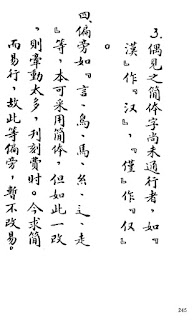 3.偶見之簡体字尚未通行者,如『
漢』作『汉』,『僅』作『仅』
。
四、偏旁如『言、鳥、馬、糸、辶、走
』等,本可采用簡体,但如此一改
,則牽動太多,刊刻費时。今求簡
而易行,故此等偏旁,暫不改易。
245